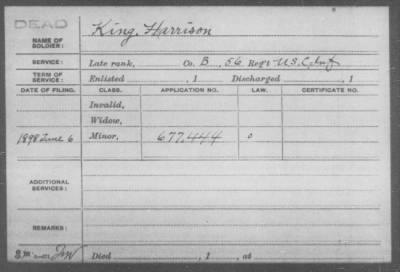 DEAD
NAME OF SOLDIER: King, Harrison
SERVICE: Late rank, Co. B, 56 Reg't U.S.C. Inf
TERM OF SERVICE: Enlisted , 1 Discharged , 1
DATE OF FILING. CLASS. APPLICATION NO. LAW. CERTIFICATE NO.
Invalid,
Widow,
1898 June 6 Minor, 677,444 o
ADDITIONAL SERVICES:
REMARKS:
Died , 1 , at